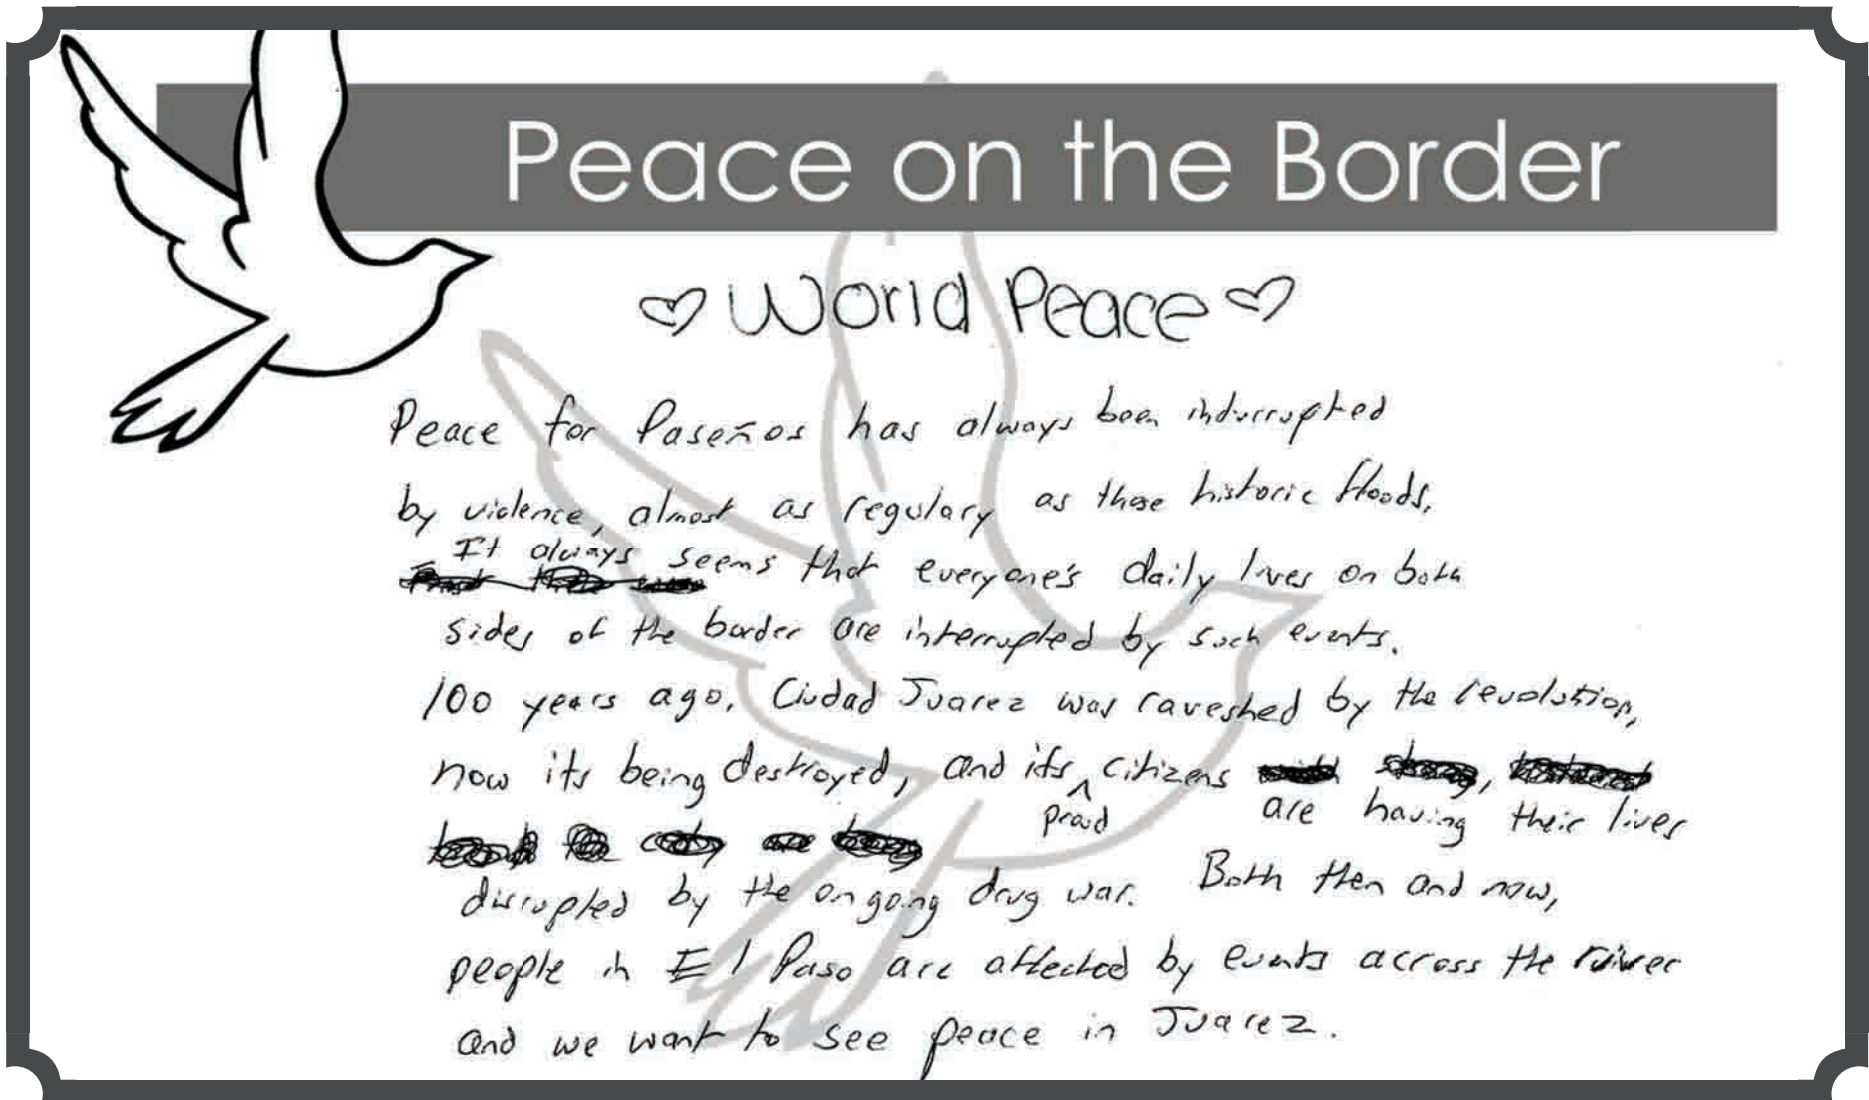 Peace on the Border
World Peace
Peace for Paseños has always been indurrupted
by violence, almost as regulary as those historic floods.
It always seems that everyone's daily lives on both
sides of the border are interrupted by such events.
100 years ago, Ciudad Juarez was raveshed by the revolution,
now its being destroyed, and its proud citizens
are having their lives
disrupted by the ongoing drug war. Both then and now,
people in El Paso are affected by events across the river
and we want to see peace in Juarez.